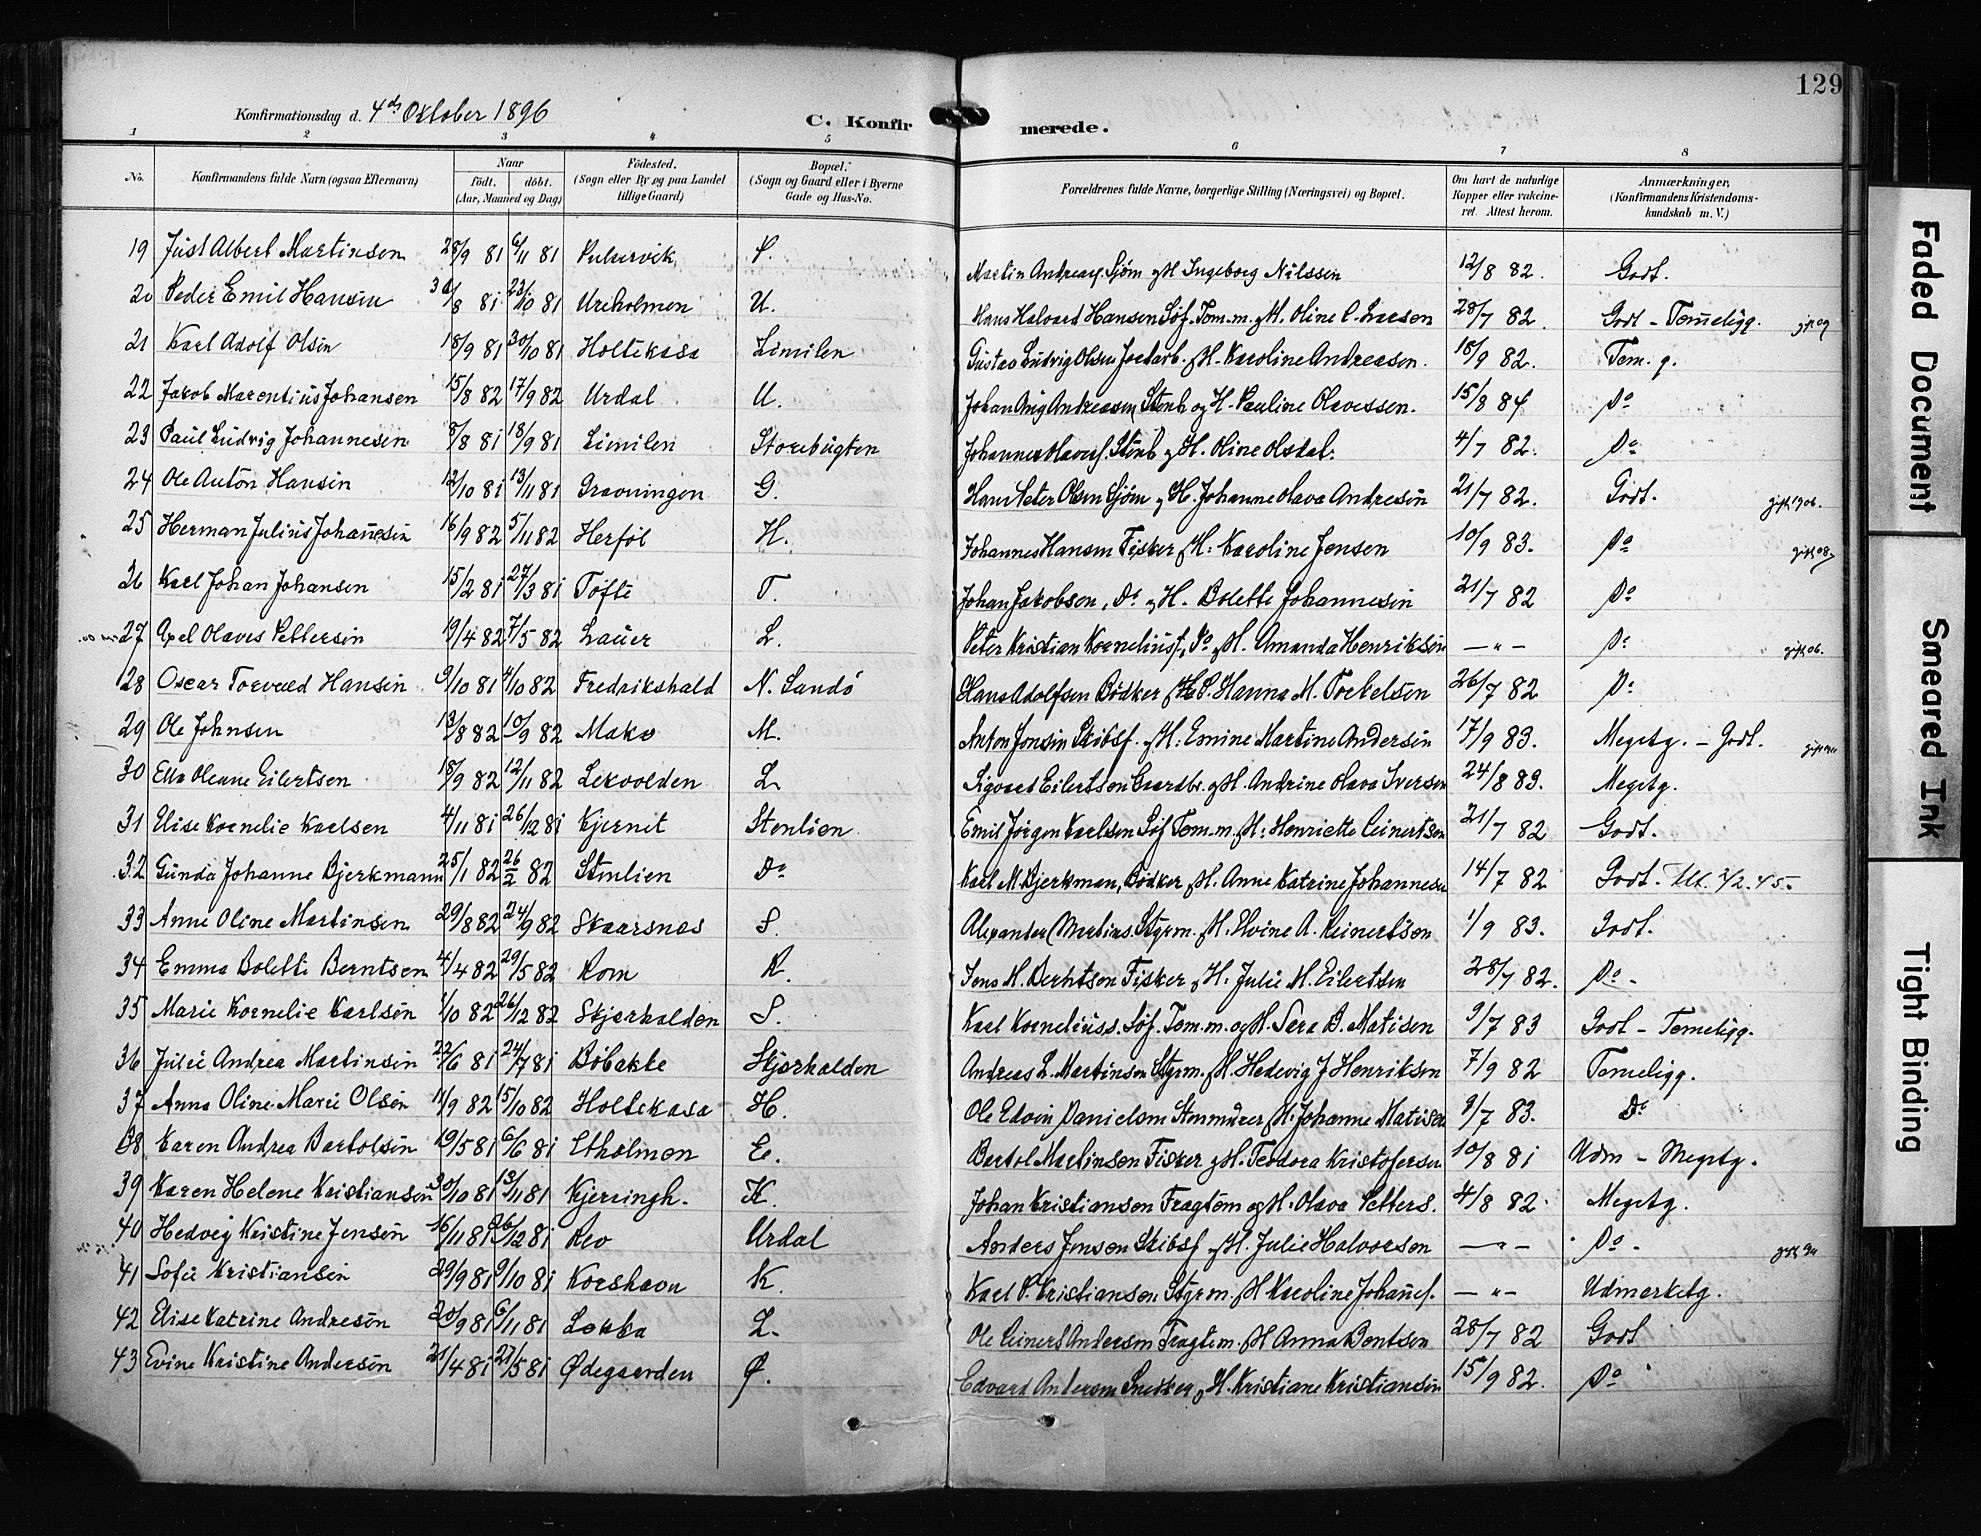 129
Konfirmationsdag d. 4de Oktober 1896
C. Konfirmerede.
1 2 3 4 5 6 7 8
No. Konfirmandens fulde Navn (ogsaa Efternavn) Naar født, døbt. (Aar, Maaned og Dag) Fødested. (Sogn eller By og paa Landet tillige Gaard) Bopæl. (Sogn og Gaard eller i Byerne Gade og Hus-No. Forældrenes fulde Navne, borgerlige Stilling (Næringsvei) og Bopæl. Om havt de naturlige Kopper eller vakcineret. Attest herom. Anmærkninger, (Konfirmandens Kristendomskundskab m. V.)
19 Just Albert Martinsen 28/9 81 6/11 81 P. Martin Andreas. Sjøm og H Ingeborg Nilssen 12/8 82. Godt.
20 Peder Emil Hansen 8 81 23/10 81 Ureholmen U. Hans Halvard Hansen Søf. Tom.m. og H. Oline C. Larsen 28/7 82. Godt - Temeligg.
21 Karl Adolf Olsen 18/9 81 30/10 81 Holtekasa Limilen Gustav Ludvig Olsen Jordarb. og H. Karoline Andreasen. 18/9 82. Tem. g.
22 Jakob Marentius Johansen 15/8 82 17/9 82 Urdal U. Johan Aug Andreasen, Stenh og H. Pauline Olavessen. 15/8 84 Do
23 Paul Ludvig Johannesen 8/8 81 18/9 81 Limilen Storebugten Johannes Olaves. Stenh og H. Oline Olsdat. 4/7 82. Do
24 Ole Anton Hansen 12/10 81 13/11 81 Gravningen G. Hans Peter Olsen Sjøm og H. Johanne Olava Andresen 21/7 82. Godt. gift 1906.
25 Herman Julius Johannesen 16/9 82 5/11 82 Herføl H. Johannes Hansen Fisker og H. Karoline Jensen 10/9 83. Do gift 08
26 Karl Johan Johansen 15/2 81 27/3 81 Tofte T. Johan Jakobsen, Do og H. Bolette Johannesen 21/7 82 Do
27 Axel Olaves Pettersen 19/4 82 7/5 82 Lauer L. Peter Kristian Kornelius., Do og H. Amanda Henriksen — " — Do gift 06.
28 Oscar Torvald Hansen 9/10 81 4/10 82 Fredrikshald N. Sandø Hans Adolfsen Bødker og H. Hanna M. Torkelsen 26/7 82 Do
29 Ole Johnsen 13/8 82 10/9 82 Makø M. Anton Jonsen Skibsf. og H. Emine Martine Andersen 17/9 83. Megetg. - Godt.
30 Ella Oleane Eilertsen 18/9 82 12/11 82 Lervolden L Sigvart Eilertsen Gaardbr. og H. Andrine Olava Iversen 24/8 83. Megetg.
31 Elise Kornelie Karlsen 4/11 81 26/12 81 Kjernet Stenlien Emil Jørgen Karlsen Søf Tom.m. og H. Henriette Einertsen 21/7 82 Godt.
32 Gunda Johanne Bjerkmann 25/1 82 26/2 82 Stenlien Do Karl M. Bjerkman, Bødker og H. Anne Katrine Johannesen 14/7 82 Godt. Utt. 2/2.45.
33 Anne Oline Martinsen 29/8 82 24/9 82 Skaarsnes S. Alexander Martins. Styrm. og H. Elvine A. Reinertsen 1/9 83. Godt.
34 Emma Bolette Berntsen 4/4 82 29/5 82 Rom R. Jens M. Berntsen Fisker og H. Julie M. Eilertsen 28/7 82. Do
35 Marie Kornelie Karlsen 1/10 82 26/12 82 Skjærhalden S. Karl Korneliuss. Søf. Tom.m. og H. Sera B. Matisen 9/7 83 Godt - Temeligg.
36 Julie Andrea Martinsen 22/6 81 24/7 81 Bøbakke Skjærhalden Andreas L. Martinsen Styrm. og H. Hedevig J Henriksen 7/9 82 Temeligg.
37 Anna Oline Marie Olsen 11/9 82 15/10 82 Holtekasa H. Ole Edvin Danielsen Stenmurer og H. Johanne Matisen 9/7 83. Do
38 Karen Andrea Bartolsen 19/5 81 6/6 81 Etholmen E. Bartol Martinsen Fisker og H. Teodora Kristofersen 10/8 81 Udm - Megetg.
39 Karen Helene Kristiansen 30/10 81 13/11 81 Kjerringh. K. Johan Kristiansen Fragtem og H. Olava Petters. 4/8 82. Megetg.
40 Hedvig Kristine Jensen 16/11 81 26/12 81 Rev Urdal Anders Jensen Skibsf og H. Julie Halvorsen — " — Do
41 Sofie Kristiansen 29/9 81 9/10 81 Korshavn K. Karl P. Kristiansen Styrm. og H Karoline Johannes. — " — Udmerketg.
42 Elise Katrine Andresen 20/9 81 6/11 81 Løkka L. Ole Einert Andersen Fragtem. og H Anna Bentsen 28/7 82 Godt
43 Evine Kristine Andersen 21/4 81 27/5 81 Ødegaarden Ø. Edvard Andersen Snedker og H. Kristiane Kristiansen 15/9 82. Do
Faded Document
Smeared Ink
Tight Binding